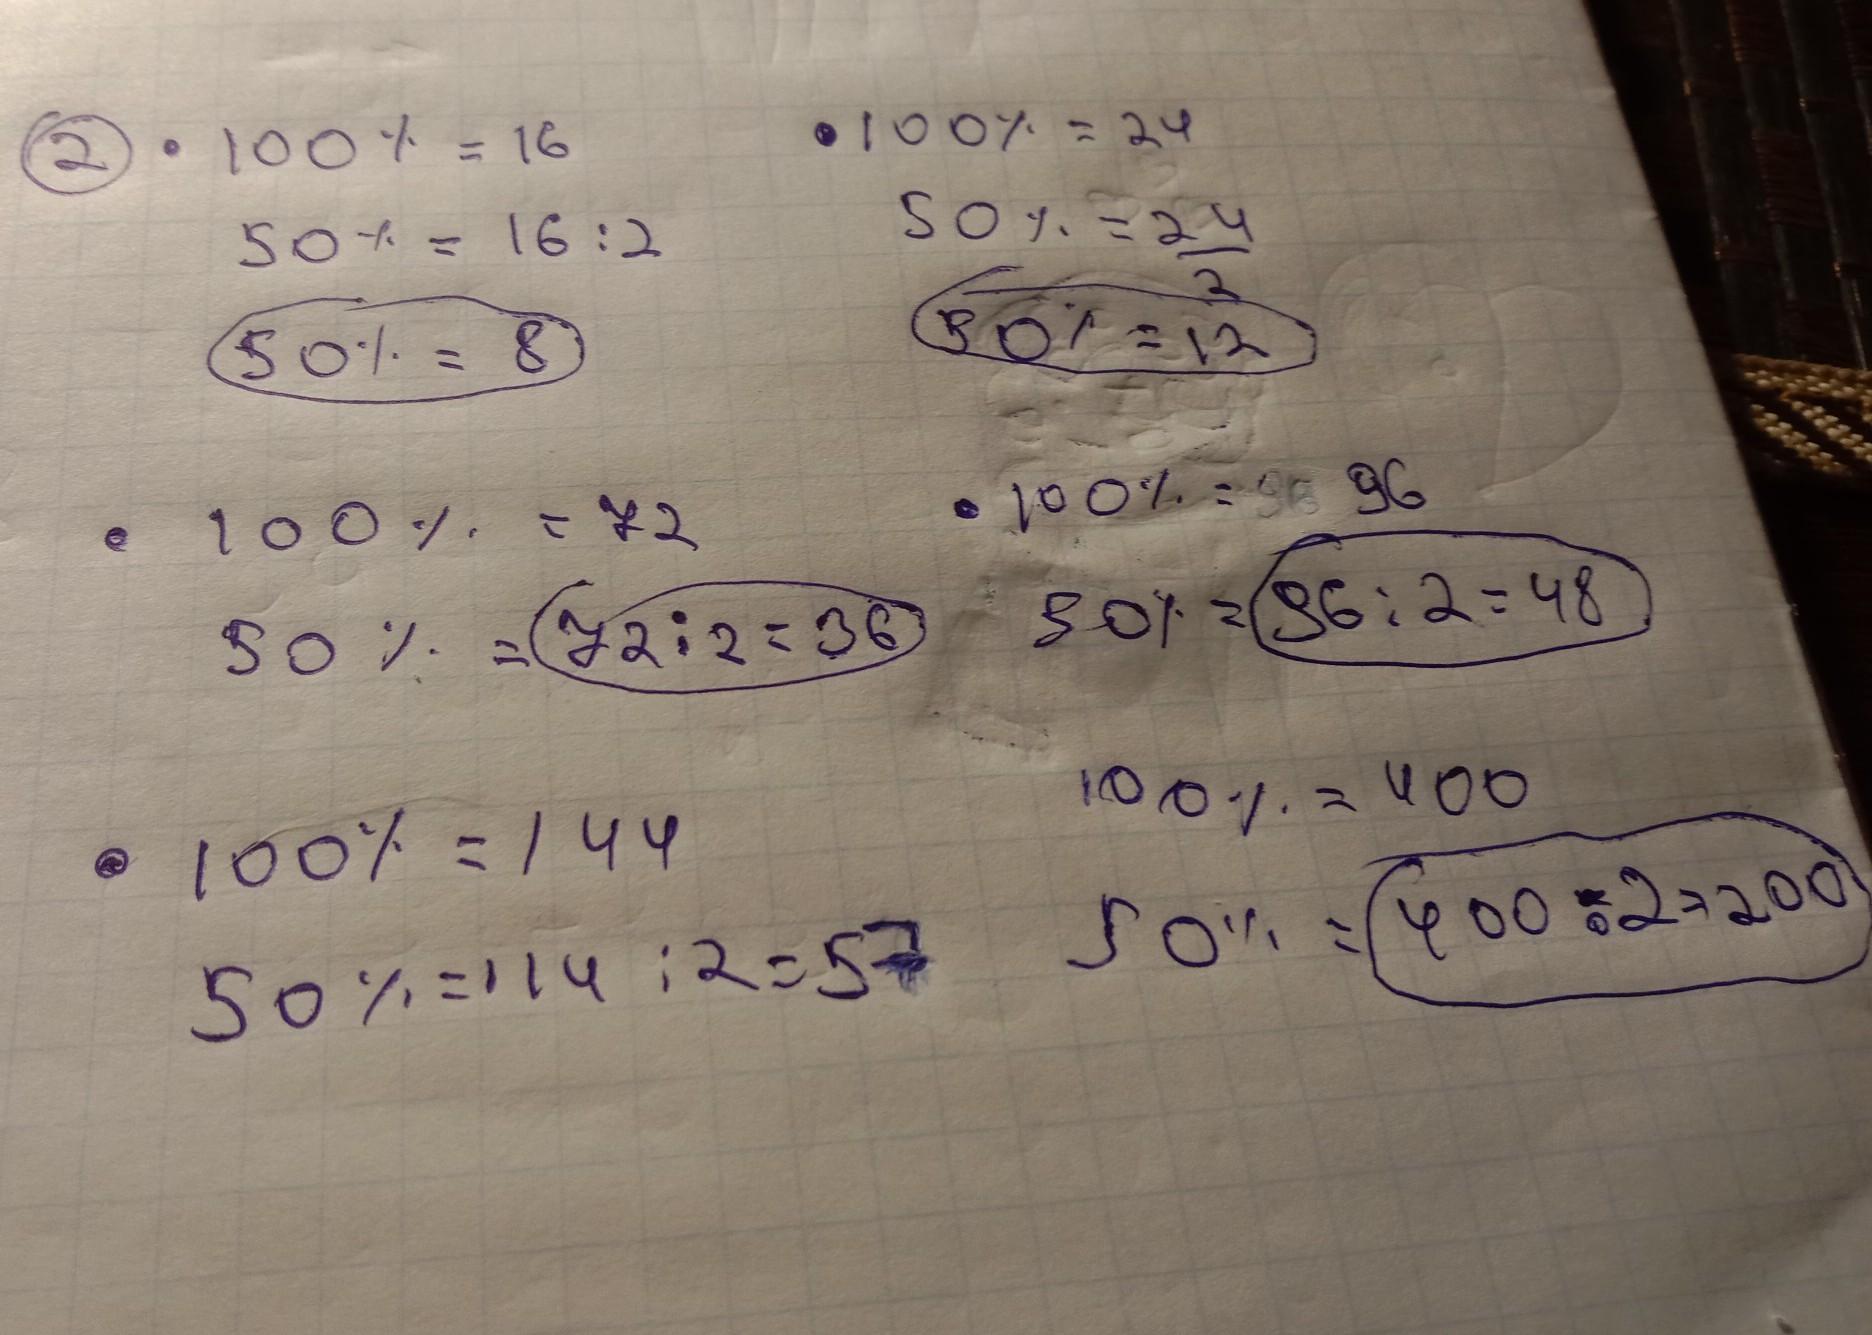 2 • 100% = 16
50% = 16:2
50% = 8
• 100% = 24
50% = 24/2
50% = 12
• 100% = 72
50% = 72:2=36
• 100% = 96 96
50% = 96:2=48
• 100% = 144
50% = 114:2=57
100% = 400
50% = 400:2=200